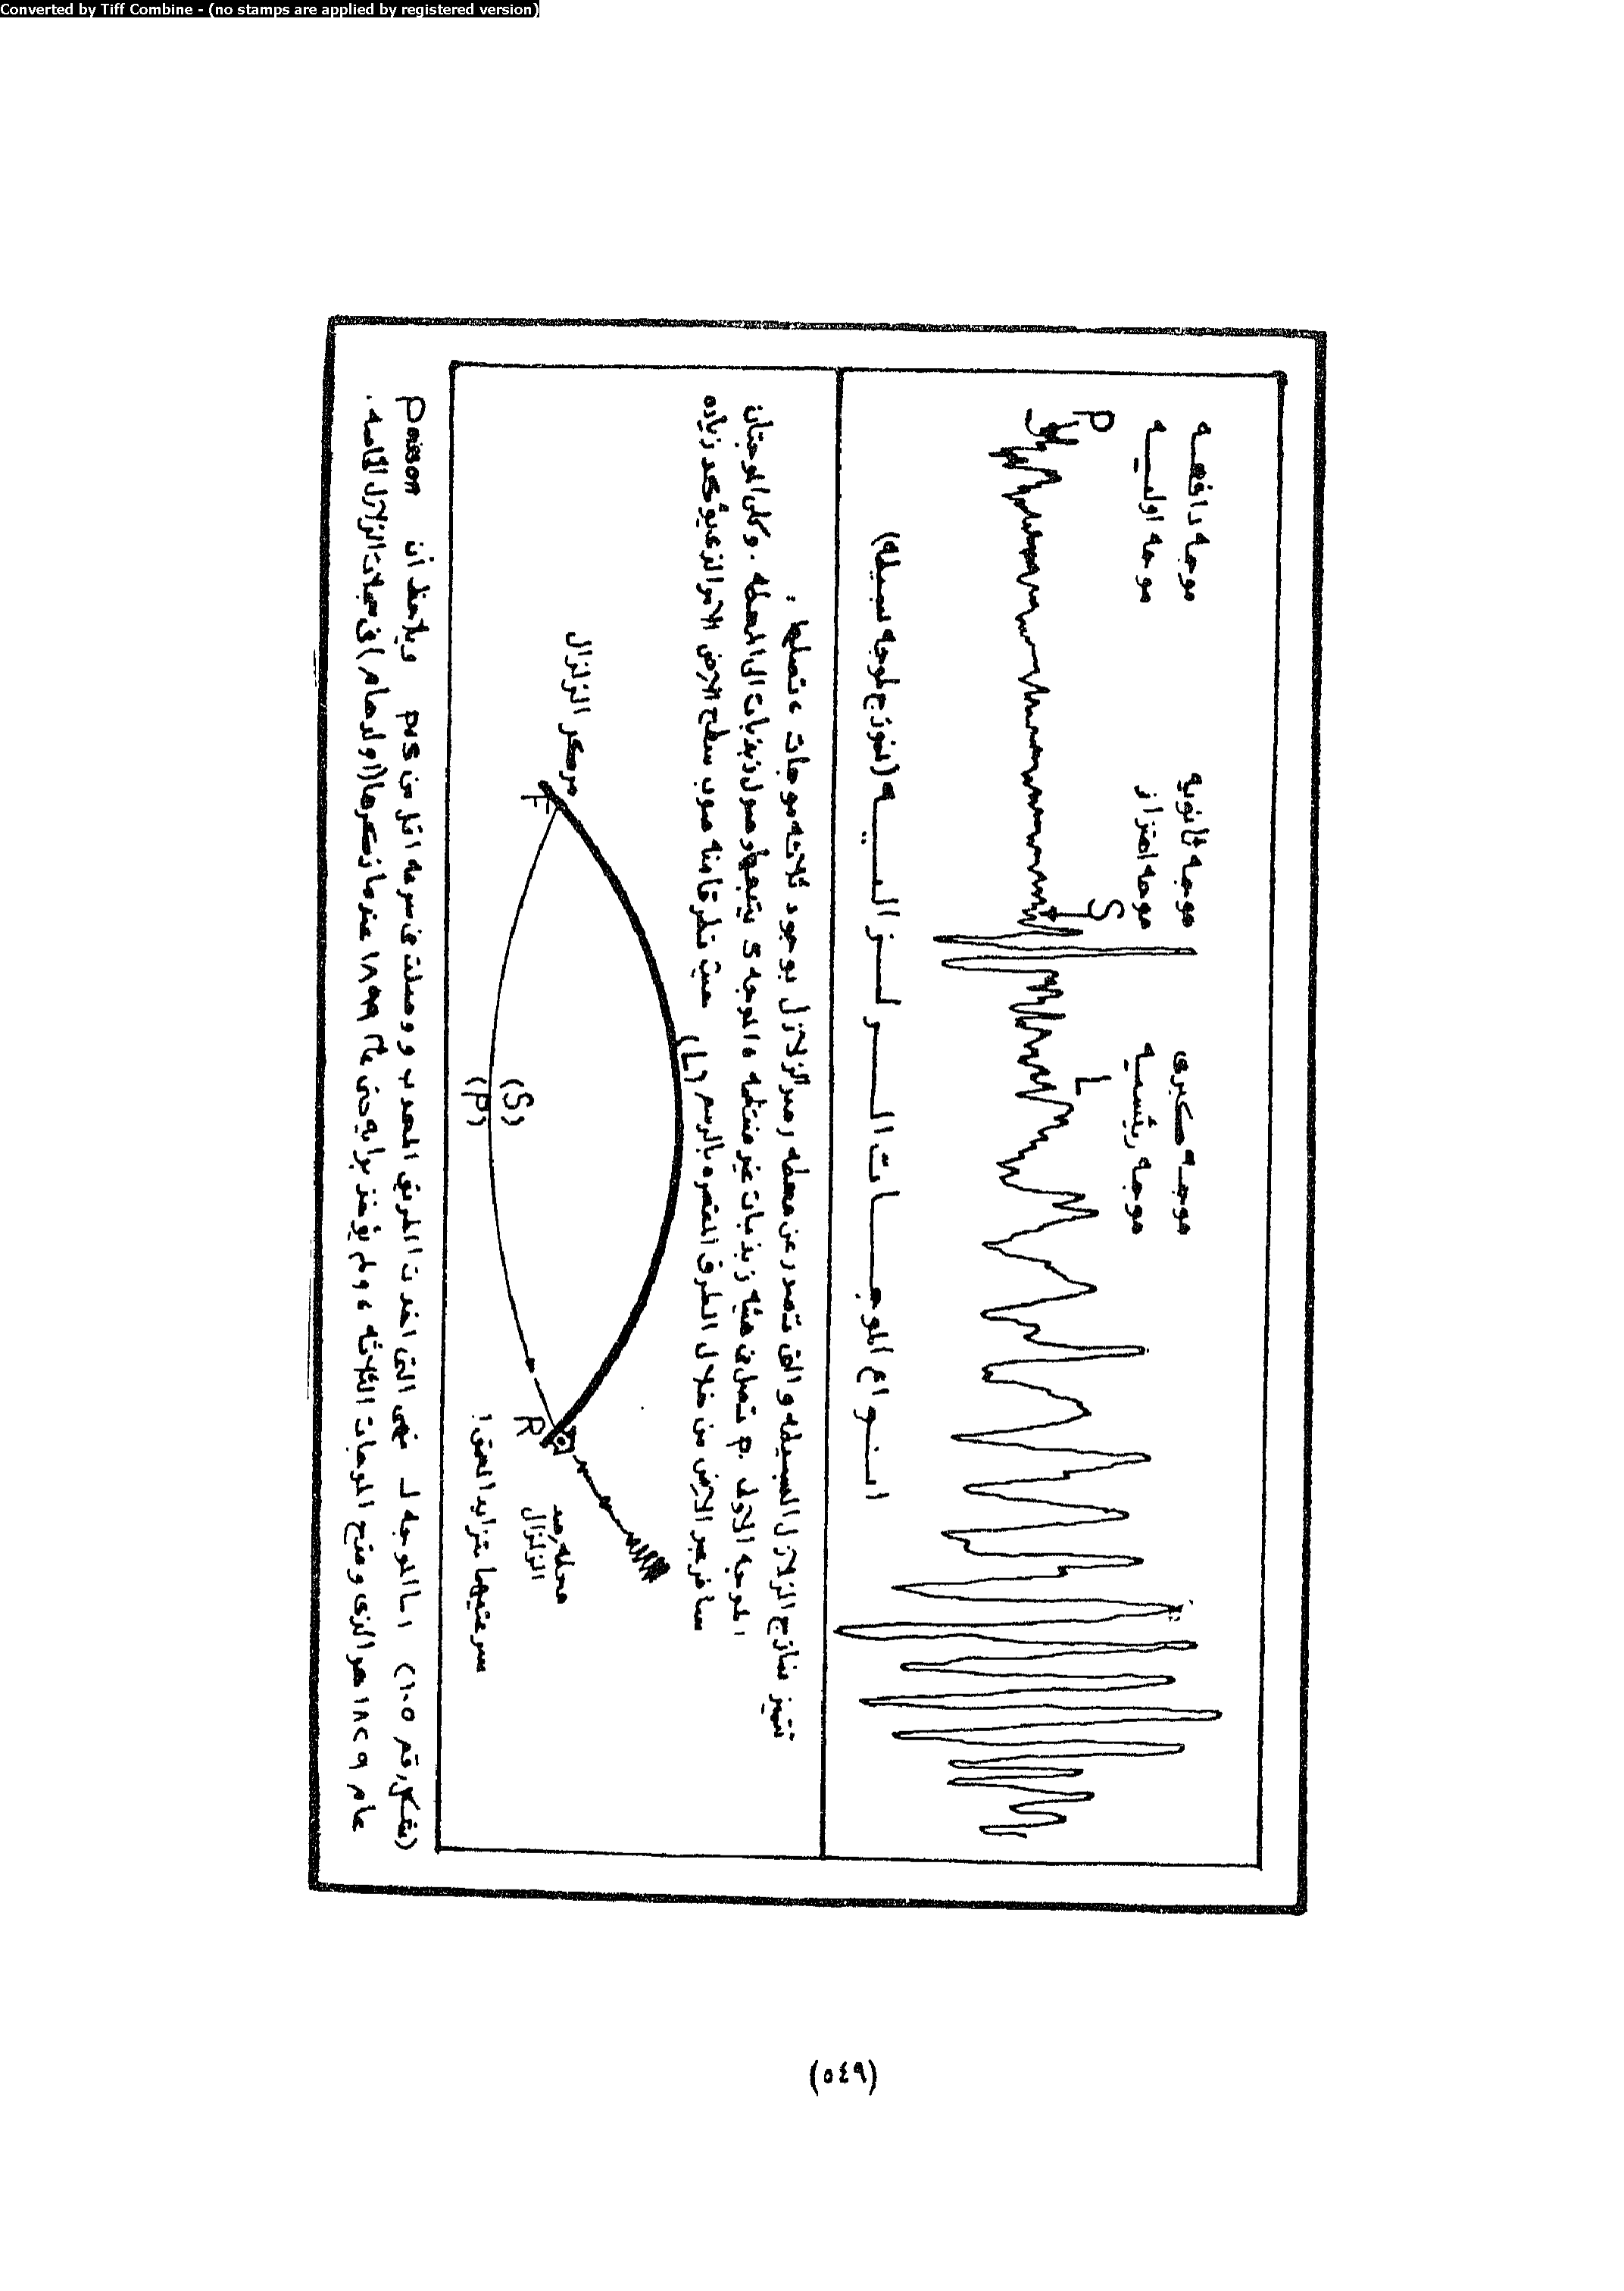 Converted by Tiff Combine - (no stamps are applied by registered version)
موجه دافعه
موجه اوليه
P
موجه ثانويه
موجه اهتزاز
S
موجه كبرى
موجه رئيسيه
L
انواع الموجات السولزاليه (نموذج لموجه بسيطه)
تتميز نماذج الزلازل البسيطه والتى تصدر عن محطه رصد الزلازل بوجود ثلاثه موجات ، تصلها :
الموجه الأولى p. تصل فى هيئه ذبذبات غير منتظمه ، الموجه S يتبعها وصول ذبذبات الى المحطه . وكلى الموجتان
سافر عبر الأرض من خلال الطرق المقعره بالرسم (L) حيث تظهر قامته صوب سطح الأرض الأمر الذى يؤكد زياده
سرعتيهما بتزايد العمق !
مركز الزلزال
F
(L)
(S)
(P)
R
محطه رصد
الزلزال
(شكل رقم ١٠٥) اما الموجه L فهى التى اخذت الطريق المحدب ووصلت فى سرعه اقل من P,S ويلاحظ أن Poisson
عام ١٨٢٩ هو الذى وضح الموجات الثلاثه ، ولم يؤخذ برأيه حتى عام ١٨٩٩ عندما ذكرها (اولدهام) فى سجلات الزلازل الخاصه .
(٥٤٩)